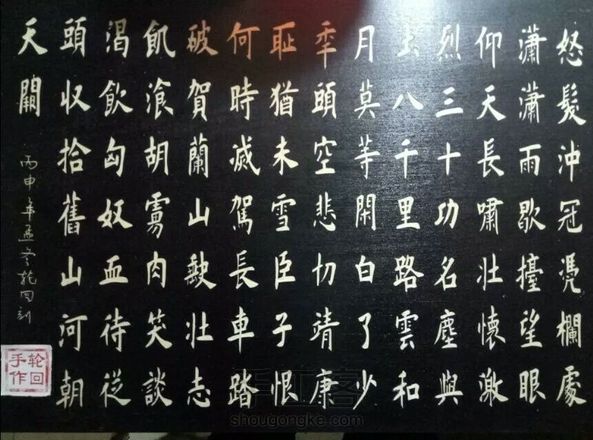 怒髮沖冠憑欄處
瀟瀟雨歇擡望眼
仰天長嘯壯懷激
烈三十功名塵與
土八千里路雲和
月莫等閑白了少
年頭空悲切靖康
耻猶未雪臣子恨
何時滅駕長車踏
破賀蘭山缺壯志
飢飡胡虜肉笑談
渴飲匈奴血待從
頭收拾舊山河朝
天闕
丙申年孟冬
轮回
手作
手工客
shougongke.com